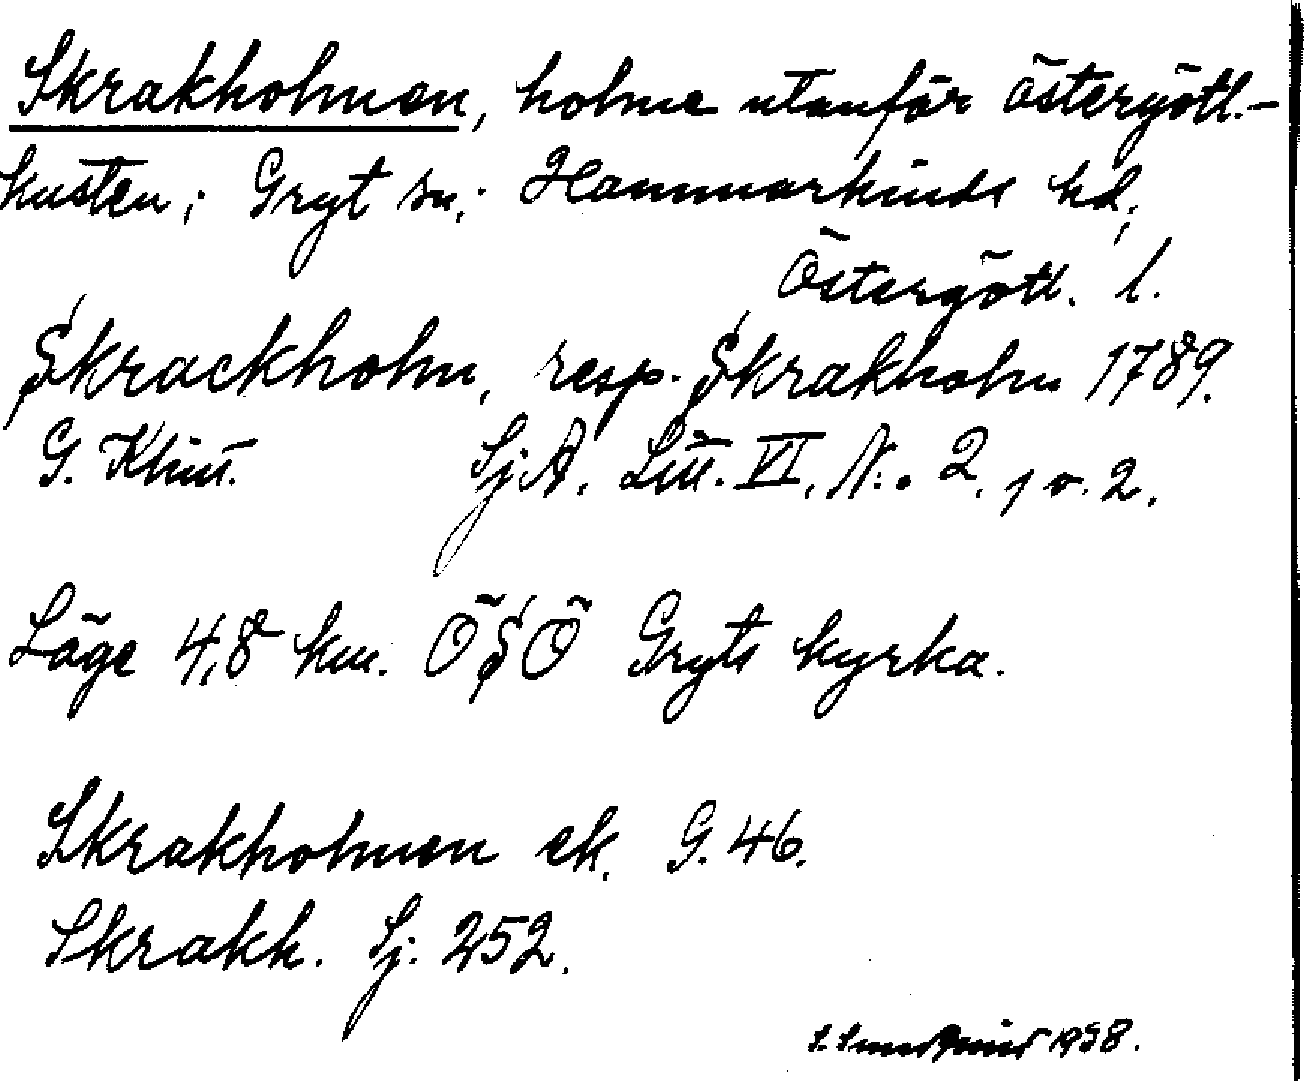 Skrakholmen, holme utanför östergötl.-
kusten; Gryt sn; Hammarkinds hd;
Östergötl. l.
Skrackholm, resp. Skrakholm 1789.
G. Klint. Sj.A. Litt. VI. N:o 2, 1 o. 2.
Läge 4,8 km. ÖSÖ Gryts kyrka.
Skrakholmen ek. G. 46.
Skrakh. Sj. 252.
1958.